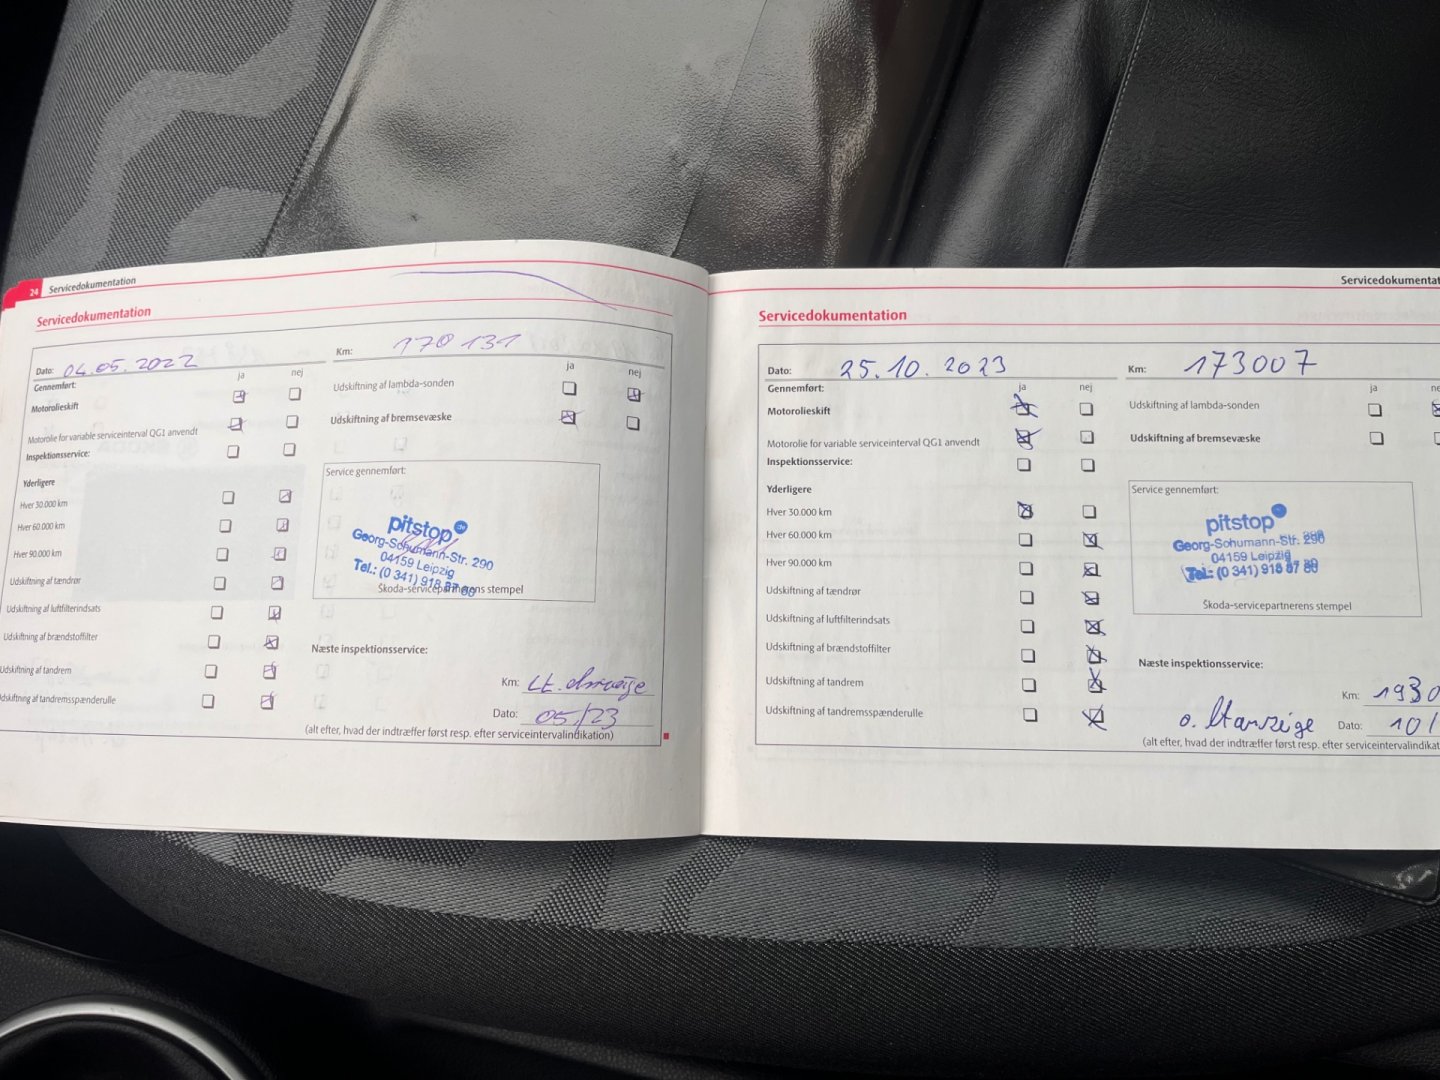 24 Servicedokumentation
Servicedokumentation
Dato: 04.05.2022
Km: 170 131
ja nej
Gennemført:
Motorolieskift
Motorolie for variable serviceinterval QG1 anvendt
Inspektionsservice:
Yderligere
Hver 30.000 km
Hver 60.000 km
Hver 90.000 km
Udskiftning af tændrør
Udskiftning af luftfilterindsats
Udskiftning af brændstoffilter
Udskiftning af tandrem
Udskiftning af tandremsspænderulle
ja nej
Udskiftning af lambda-sonden
Udskiftning af bremsevæske
Service gennemført:
pitstop.de
Georg-Schumann-Str. 290
04159 Leipzig
Tel.: (0 341) 918 87 80
Skoda-servicepartnerens stempel
Næste inspektionsservice:
Km: Lt.
Dato: 05/23
(alt efter, hvad der indtræffer først resp. efter serviceintervalindikation)
Servicedokumentat
Servicedokumentation
Dato: 25.10.2023
Km: 173007
Gennemført:
ja nej
Motorolieskift
Motorolie for variable serviceinterval QG1 anvendt
Inspektionsservice:
Yderligere
Hver 30.000 km
Hver 60.000 km
Hver 90.000 km
Udskiftning af tændrør
Udskiftning af luftfilterindsats
Udskiftning af brændstoffilter
Udskiftning af tandrem
Udskiftning af tandremsspænderulle
ja ne
Udskiftning af lambda-sonden
Udskiftning af bremsevæske
Service gennemført:
pitstop
Georg-Schumann-Str. 290
04159 Leipzig
Tel.: (0 341) 918 87 80
Škoda-servicepartnerens stempel
Næste inspektionsservice:
Km: 1930
o. Dato: 10/
(alt efter, hvad der indtræffer først resp. efter serviceintervalindikat